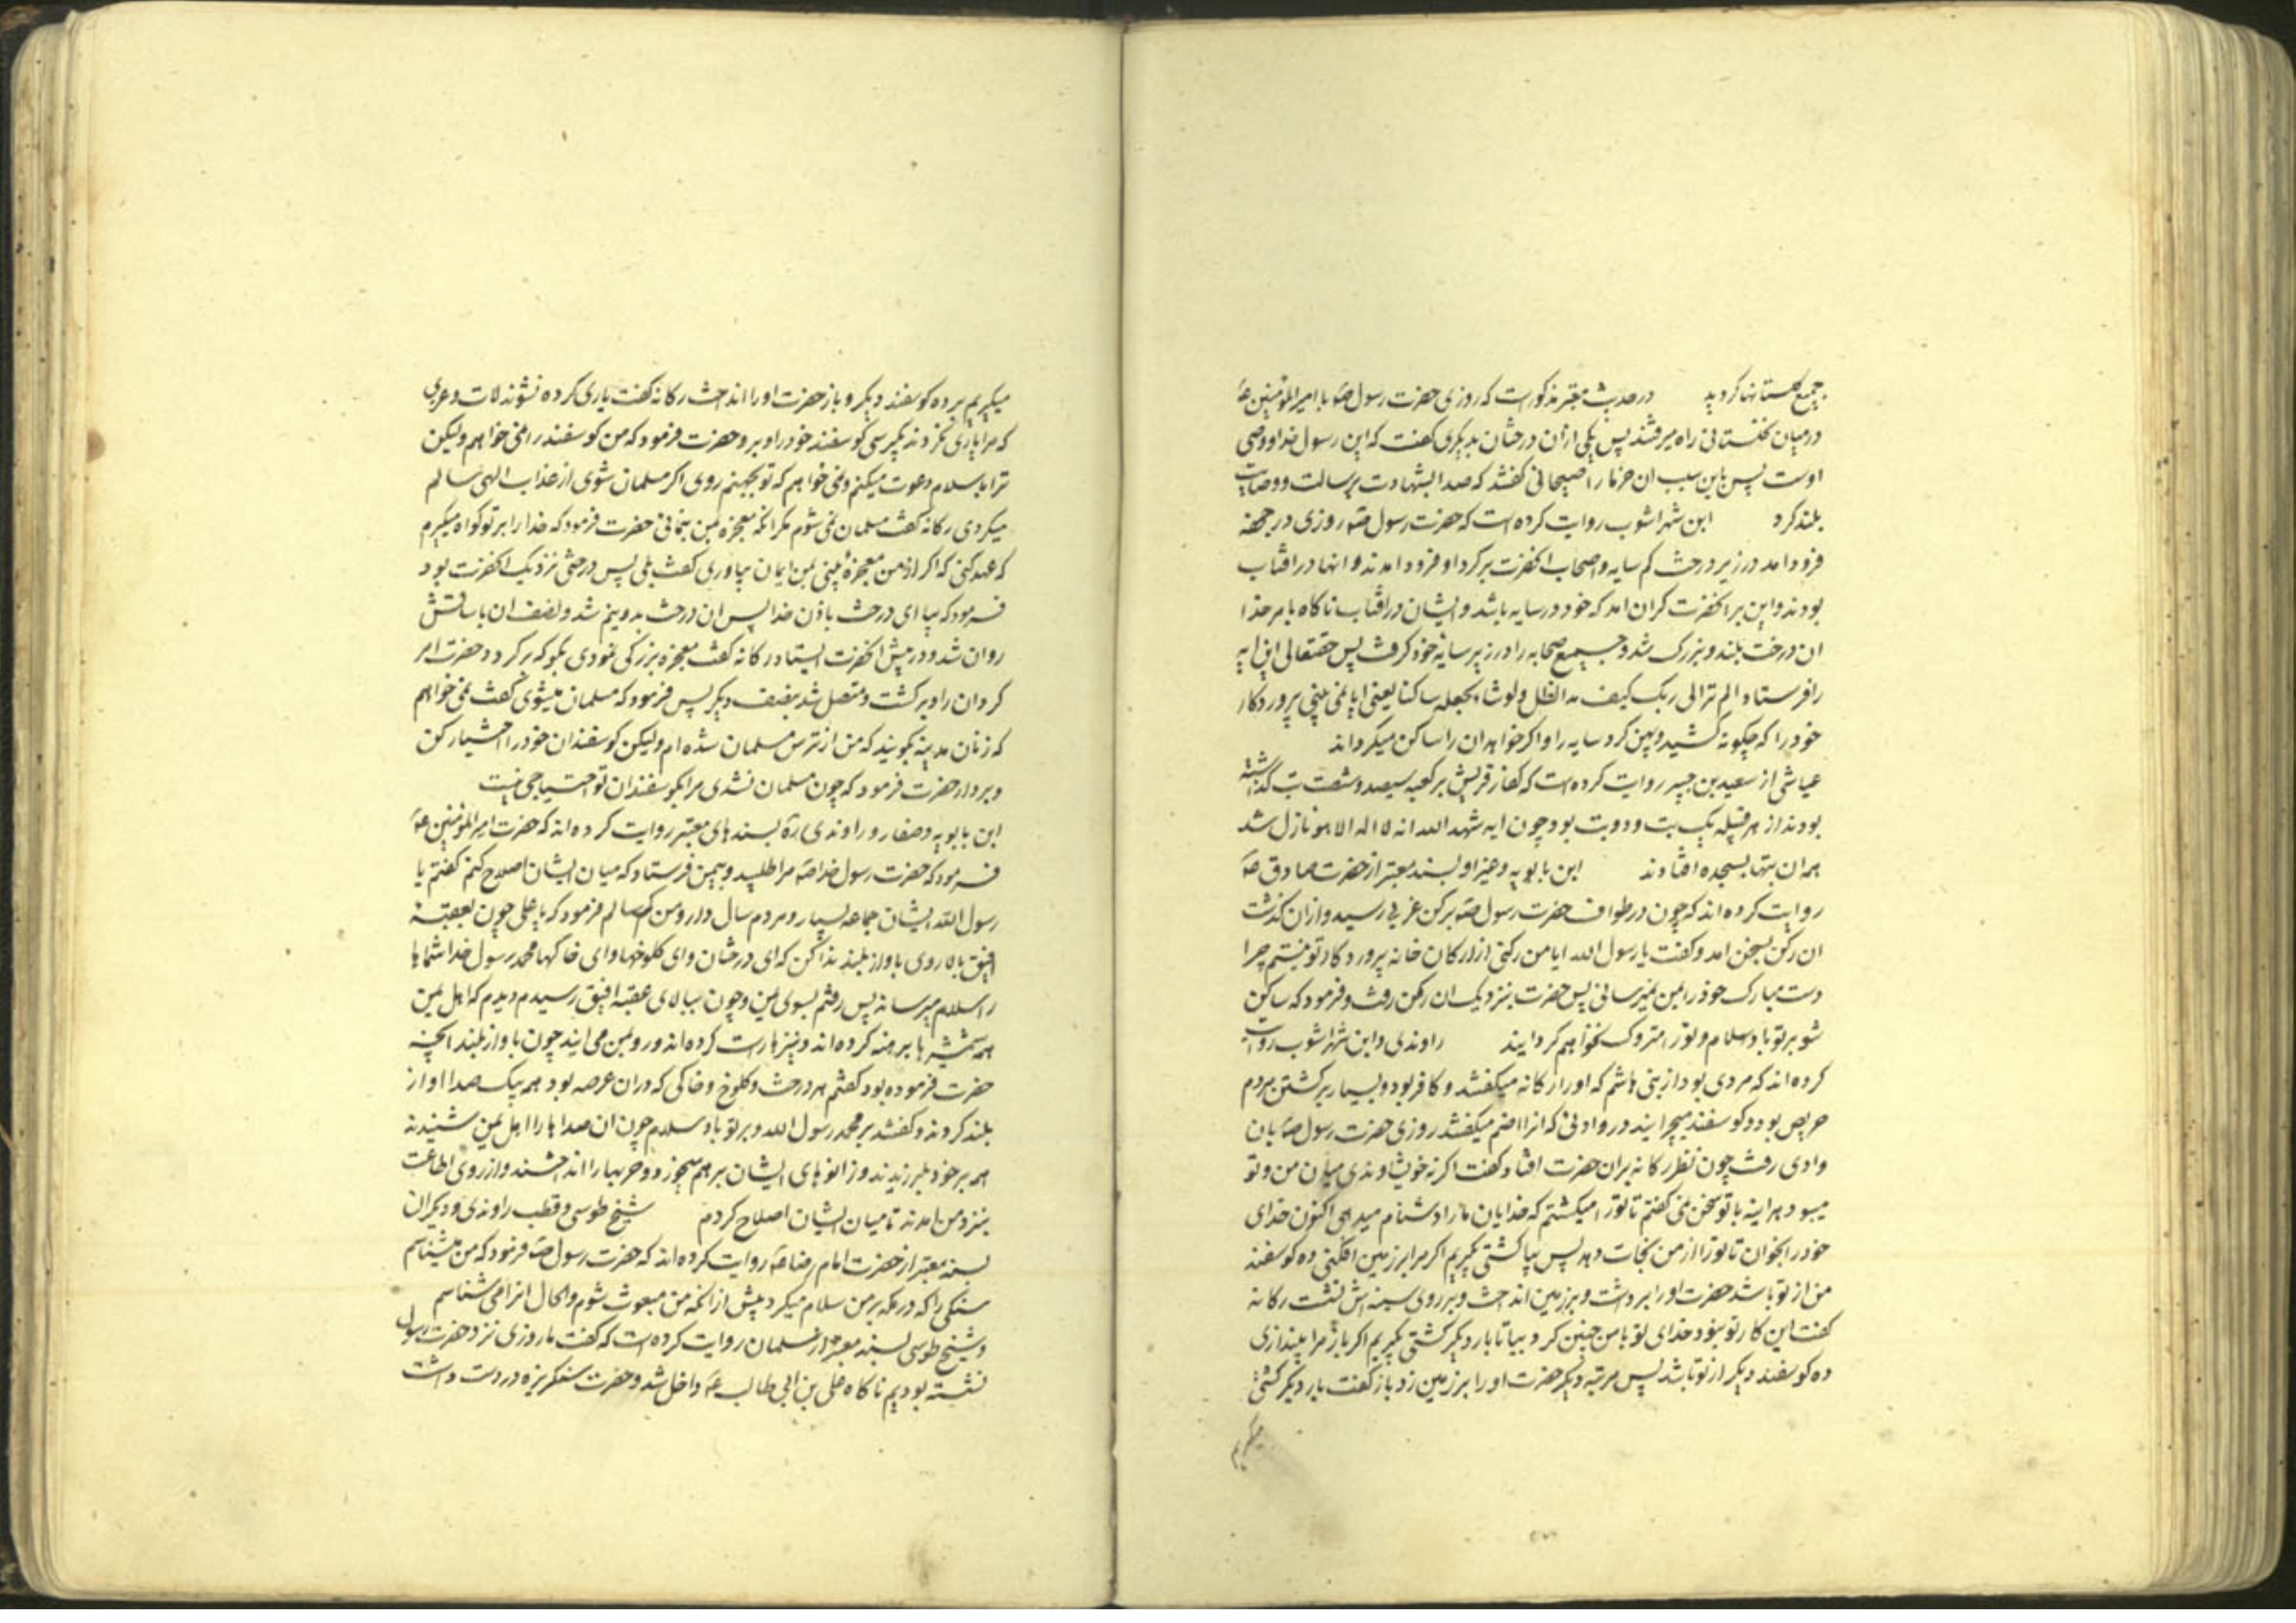 جمیع گلستانها کردید در حدیث معتبر مذکور است که روزی حضرت رسول صه با امیرالمؤمنین عه
در میان نخلستانی راه میرفتند پس یکی از آن درختان بدیگری کفت که این رسول خدا و وصی
اوست پس باین سبب ان خرما را صیحانی کفتند که صدا بشهادت برسالت و وصایت
بلند کرد ابن شهراشوب روایت کرده است که حضرت رسول صه روزی در جحفه
فرود امد در زیر درخت کم سایه و اصحاب انحضرت بر کرد او فرود امدند و انها در افتاب
بودند و این بر انحضرت کران امد که خود در سایه باشد و ایشان در افتاب ناکاه بامر خدا
ان درخت بلند و بزرک شد و جمیع صحابه را در زیر سایه خود کرفت پس حقتعالی این ایه
را فرستاد الم تر الی ربک کیف مد الظل و لوشاء لجعله ساکنا یعنی ایا نمی بینی پروردکار
خود را که چکونه کشید و پهن کرد سایه را و اکر خواهد ان را ساکن میکرداند
عیاشی از سعید بن جبیر روایت کرده است که کفار قریش بر کعبه سیصد و شصت بت کذاشته
بودند از هر قبیله یک بت و دو بت بود چون ایه شهد الله انه لا اله الا هو نازل شد
همه ان بتها بسجده افتادند ابن بابویه و غیر او بسند معتبر از حضرت صادق صه
روایت کرده اند که چون در طواف حضرت رسول صه برکن غربی رسید و از ان کذشت
ان رکن بسخن امد و کفت یا رسول الله ایا من رکنی از ارکان خانه پروردکار تو نیستم چرا
دست مبارک خود را بمن نمیرسانی پس حضرت بنزدیک ان رکن رفت و فرمود که ساکن
شو بر تو باد سلام و تو را متروک نخواهم کردانید راوندی و ابن شهراشوب روایت
کرده اند که مردی بود از بنی هاشم که او را رکانه میکفتند و کافر بود و بسیار بر کشتن مردم
حریص بود و کوسفند میچرانید در وادئی که انرا اضم میکفتند روزی حضرت رسول صه بان
وادی رفت چون نظر رکانه بران حضرت افتاد کفت اکر نه خویشاوندی میان من و تو
میبود هر اینه با تو سخن نمی کفتم تا تو را میکشتم که خدایان ما را دشنام میدهی اکنون خدای
خود را بخوان تا تو را از من نجات دهد پس بیا کشتی بکیریم اکر مرا بر زمین افکنی ده کوسفند
من از تو باشد حضرت او را برداشت و بر زمین انداخت و بر روی سینه اش نشست رکانه
کفت این کار تو نبود خدای تو با من چنین کرد بیا تا بار دیکر کشتی بکیریم اکر باز مرا بیندازی
ده کوسفند دیکر از تو باشد پس مرتبه دیکر حضرت او را بر زمین زد باز کفت بار دیکر کشتی
میکیریم
میکیریم بر ده کوسفند دیکر و باز حضرت او را انداخت رکانه کفت یاری کرده نشوند لات و عزی
که مرا یاری نکردند بکیر سی کوسفند خود را و برو حضرت فرمود که من کوسفند را نمی خواهم ولیکن
ترا باسلام دعوت میکنم و نمی خواهم که تو بجهنم روی اکر مسلمان شوی از عذاب الهی سالم
میکردی رکانه کفت مسلمان نمی شوم مکر انکه معجزه بمن بنمائی حضرت فرمود که خدا را بر تو کواه میکیرم
که عهد کنی که اکر از من معجزهٔ بینی بمن ایمان بیاوری کفت بلی پس درختی نزدیک انحضرت بود
فرمود که بیا ای درخت باذن خدا پس ان درخت بدو نیم شد و نصف ان با ساقش
روان شد و در پیش انحضرت ایستاد رکانه کفت معجزه بزرکی نمودی بکو که برکردد حضرت امر
کرد ان را و برکشت و متصل شد بنصف دیکر پس فرمود که مسلمان میشوی کفت نمی خواهم
که زنان مدینه بکویند که من از ترس مسلمان شده ام ولیکن کوسفندان خود را اختیار کن
و بردار حضرت فرمود که چون مسلمان نشدی مرا بکوسفندان تو احتیاجی نیست
ابن بابویه و صفار و راوندی ره بسندهای معتبر روایت کرده اند که حضرت امیرالمؤمنین عه
فرمود که حضرت رسول خدا صه مرا طلبید و بیمن فرستاد که میان ایشان اصلاح کنم کفتم یا
رسول الله ایشان جماعه بسیار و مردم سال دار و من کم سالم فرمود که یا علی چون بعقبه
افیق بالا روی باواز بلند ندا کن که ای درختان و ای کلوخها و ای خاکها محمد رسول خدا شما ها
را سلام میرساند پس رفتم بسوی یمن و چون ببالای عقبه افیق رسیدم دیدم که اهل یمن
همه شمشیرها برهنه کرده اند و نیزها راست کرده اند و رو بمن می ایند چون باواز بلند انچه
حضرت فرموده بود کفتم هر درخت و کلوخ و خاکی که در ان عرصه بود همه بیک صدا اواز
بلند کردند و کفتند بر محمد رسول الله و بر تو باد سلام چون ان صداها را اهل یمن شنیدند
همه بر خود بلرزیدند و زانوهای ایشان بر هم میخورد و حربها را انداختند و از روی اطاعت
بنزد من امدند تا میان ایشان اصلاح کردم شیخ طوسی و قطب راوندی و دیکران
بسند معتبر از حضرت امام رضا عه روایت کرده اند که حضرت رسول صه فرمود که من میشناسم
سنکی را که در مکه بر من سلام میکرد پیش از انکه من مبعوث شوم و الحال انرا می شناسم
و شیخ طوسی بسند معتبر از سلمان روایت کرده است که کفت ما روزی نزد حضرت رسول
نشسته بودیم ناکاه علی بن ابی طالب عه داخل شد و حضرت سنکریزه در دست داشت